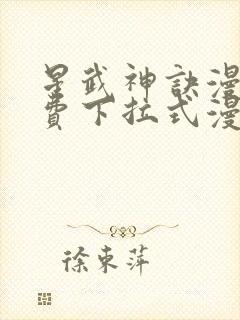 星武神訣漫
費下拉式漫
徐東萍